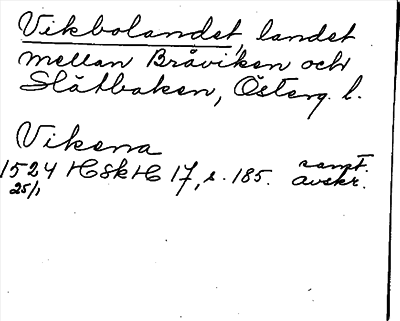 Vikbolandet, landet
mellan Bråviken och
Slätbaken, Österg. l.
Vikena
1524 HSkH 17, s. 185. samt. avskr.
25/1